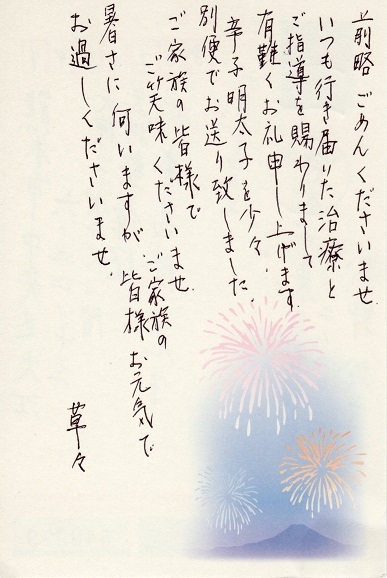 前略 ごめんくださいませ
いつも行き届いた治療と
ご指導を賜わりまして
有難くお礼申し上げます
辛子明太子を少々
別便でお送り致しました
ご家族の皆様で
ご笑味くださいませ
暑さに向いますが、ご家族の
皆様お元気で
お過しくださいませ。
草々